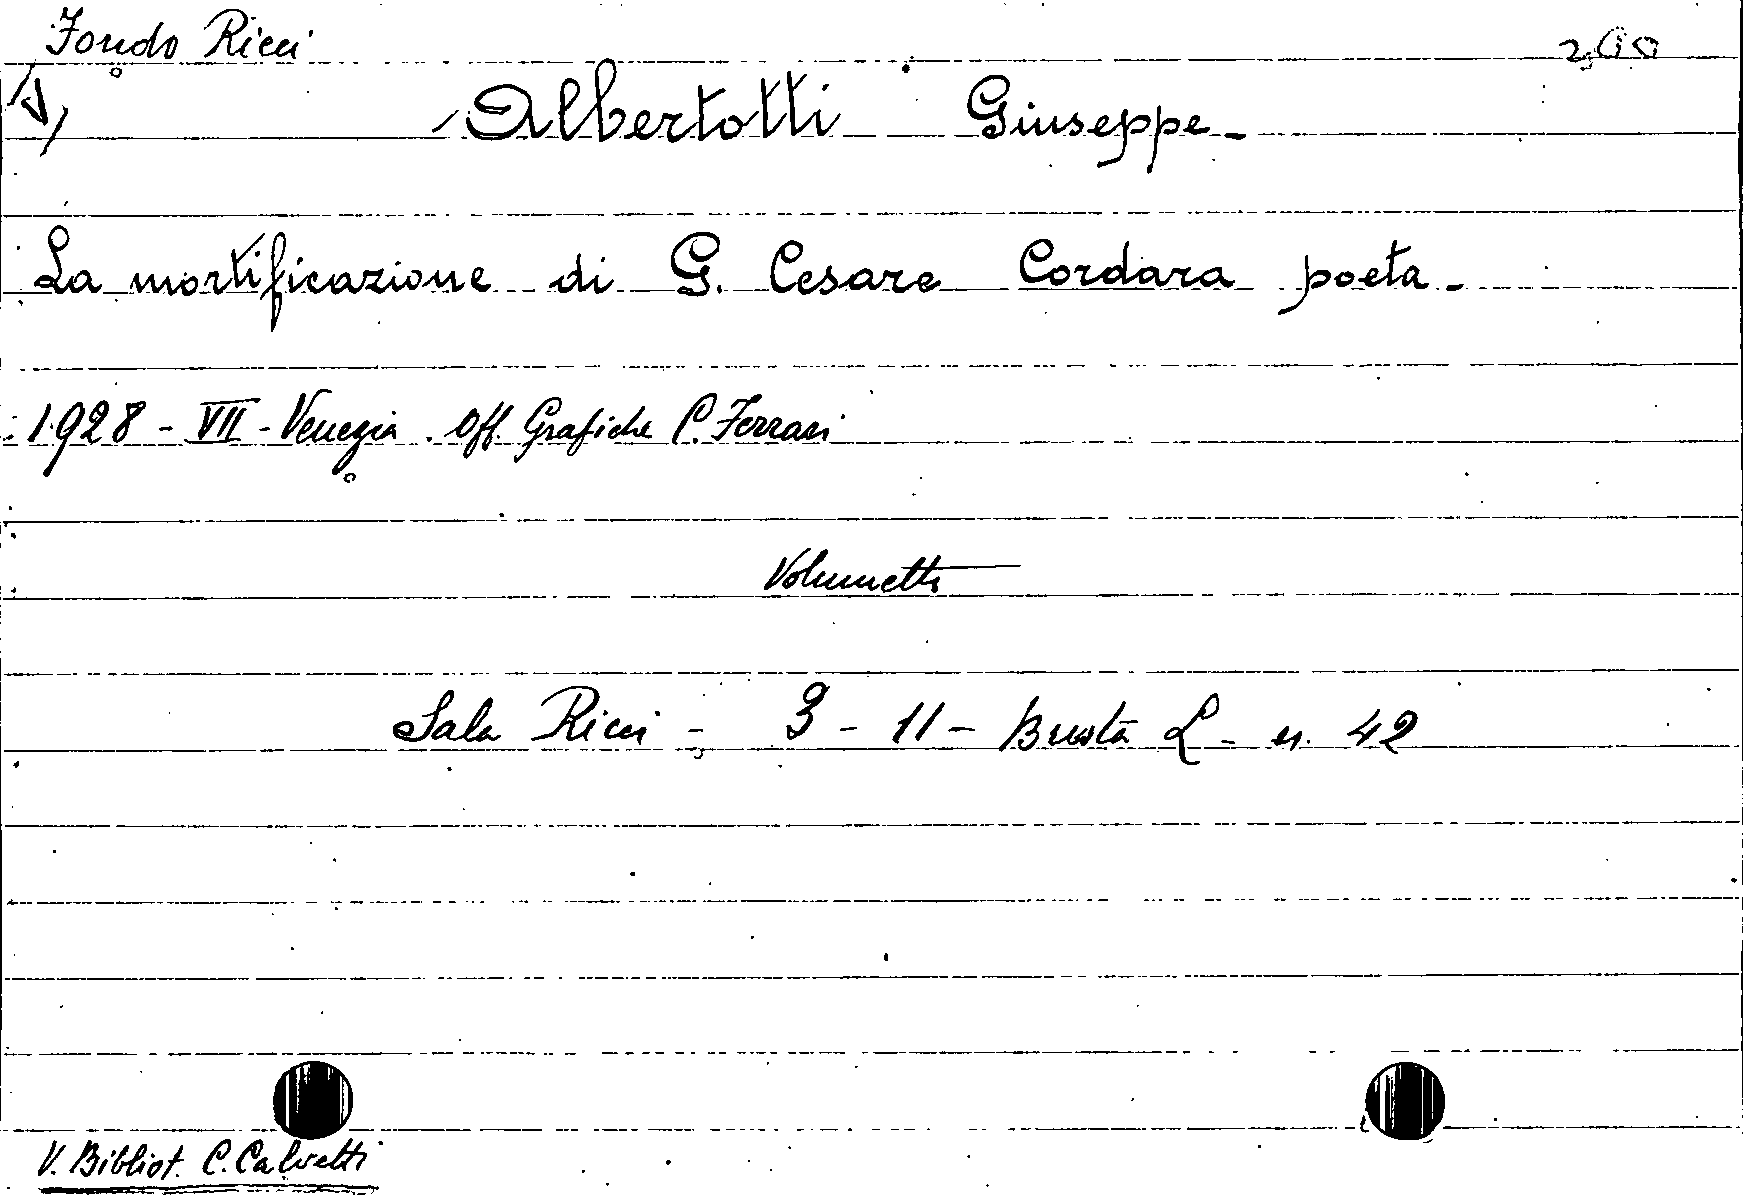 Fondo Ricci 200
Albertotti Giuseppe -
La mortificazione di G. Cesare Cordara poeta -
1928 - VII - Venezia. Off. Grafiche C. Ferrari
Volumetto
Sala Ricci - 3 - 11 - Busta L - n. 42
V. Bibliot. C. Calvetti